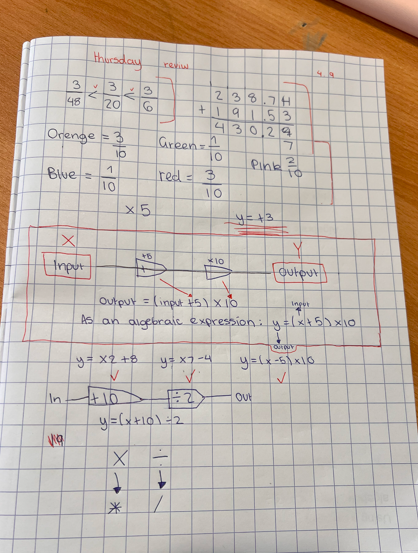 thursday review
4.9
3/48 < 3/20 < 3/6
238.74
+ 191.53
430.24
7
Orenge = 3/10
Green = 1/10
Pink 2/10
Blue = 1/10
red = 3/10
x 5
y = +3
X
Y
Input
+5
+
x10
Output
output = (input +5) x 10
input
As an algebraic expression: y = (x+5) x 10
output
y = x2 +8 y = x7 -4 y = (x-5) x 10
In +10 ÷2 Out
y = (x+10) ÷ 2
X ÷
* /